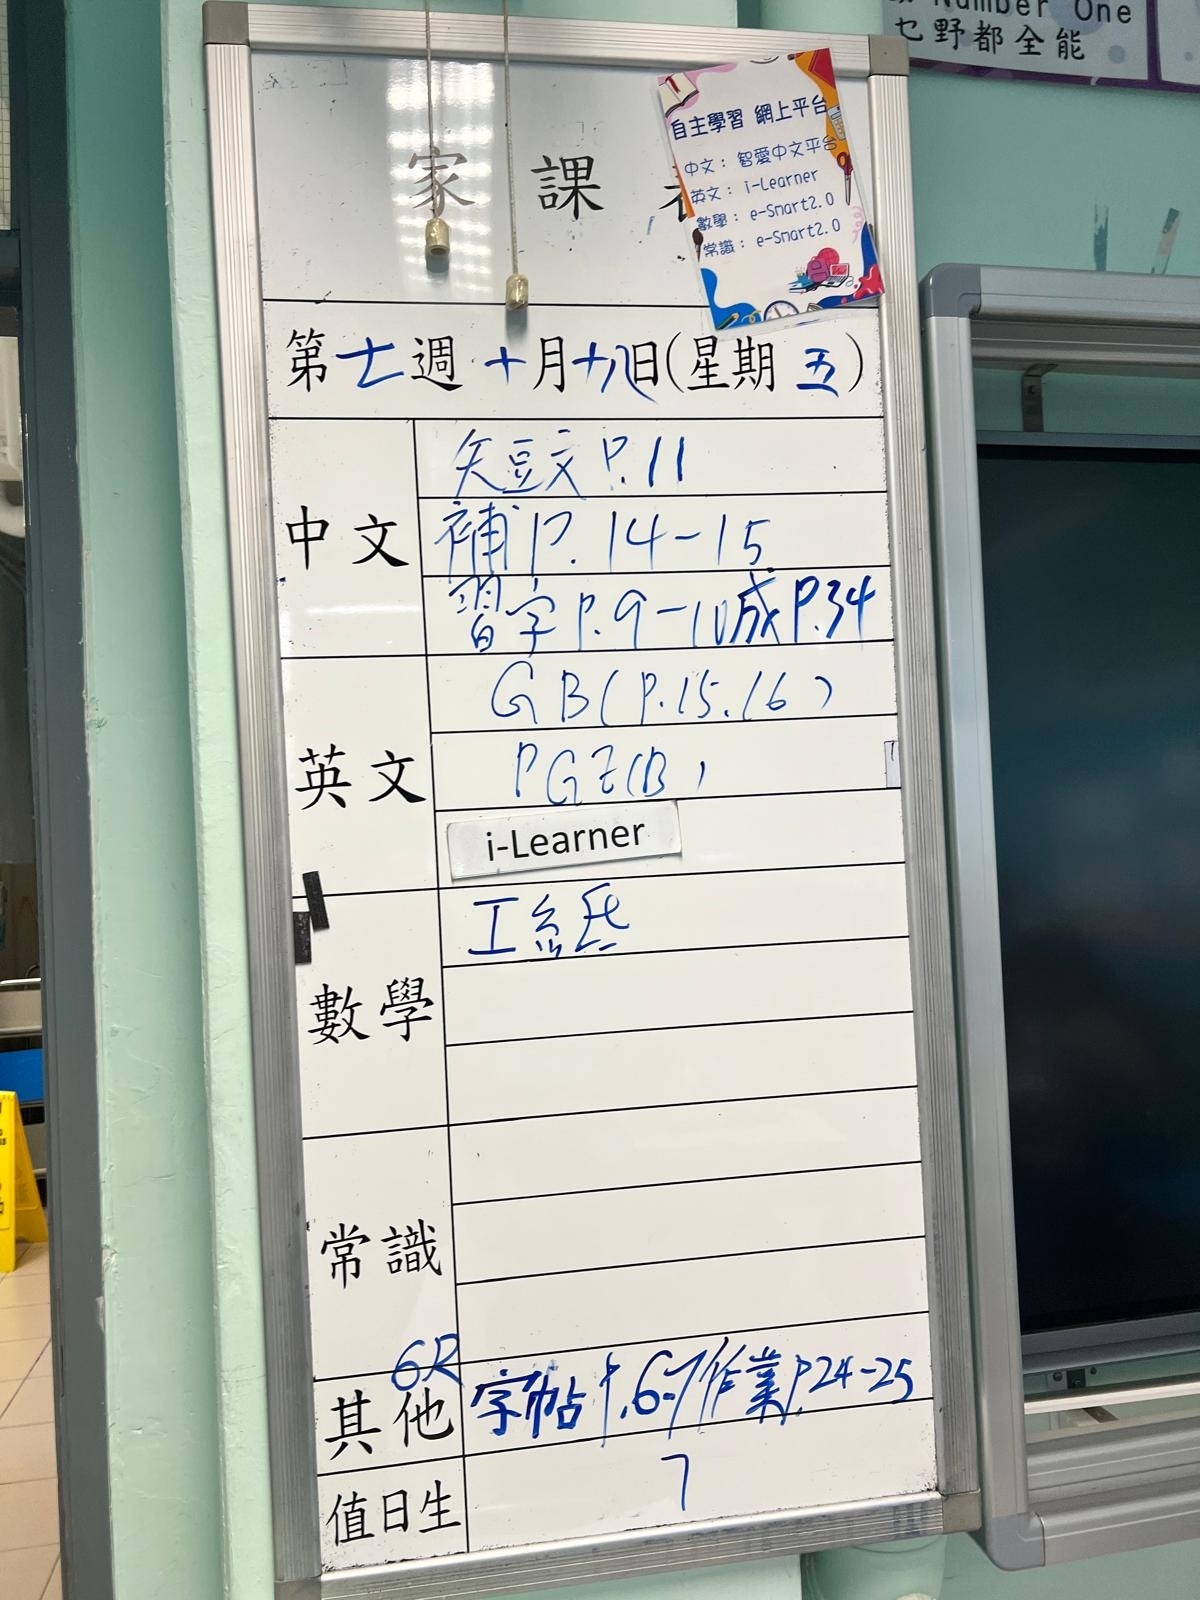 Number One
乜野都全能
家課
自主學習 網上平台
中文：智愛中文平台
英文：i-Learner
數學：e-Smart2.0
常識：e-Smart2.0
第七週 十月十八日(星期五)
中文
矢豆文 P.11
補 P.14-15
習字 P.9-10 成 P.34
英文
GB (P.15.16)
PGE(B)
i-Learner
數學
工糸氏
常識
6R
其他
字帖 P.6-7/作業 P.24-25
值日生
7